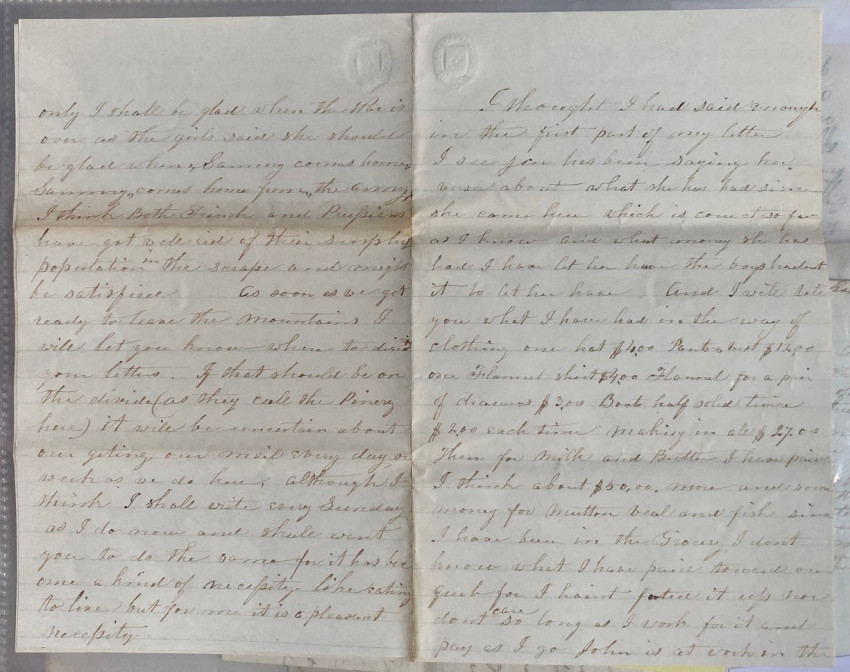 only I shall be glad when the War is
over as the girls said she should
be glad when, Sammy comes home,
Sammy,, comes home from,, the army
I think Both French and Prussians
have got well rid of their surplus
population in the scrape and might
be satisfied As soon as we get
ready to leave the mountains I
will let you know when to direct
your letters. If that should be on
the divide (as they call the Pinery
here) it will be uncertain about
our geting our mail every day or
week as we do here, although I
think I shall write every Sunday
as I do now and shall want
you to do the same for it has bec
ome a kind of necessity like eating
to live but for me it is a pleasant
necessity.
I thought I had said enough
in the first part of my letter
I see Jen has been saying her
verse about what she has had since
she came here which is correct so far
as I know and what money she has
had I have let her have the boys hadent
it to let her have. And I will tell
you what I have had in the way of
clothing one hat $4.00 Pants & vest $12.00
one Flannel shirt $4.00 Flannel for a pair
of drawers $3.00 Boots half soled twice
$2.00 each time making in all $27.00
Then for Milk and Butter I have paid
I think about $50.00. more and some
money for Mutton veal and fish since
I have been in the Grocery I dont
know what I have paid toward our
grub for I haint it up nor
dont care so long as I work for it and
pay as I go John is at work in the